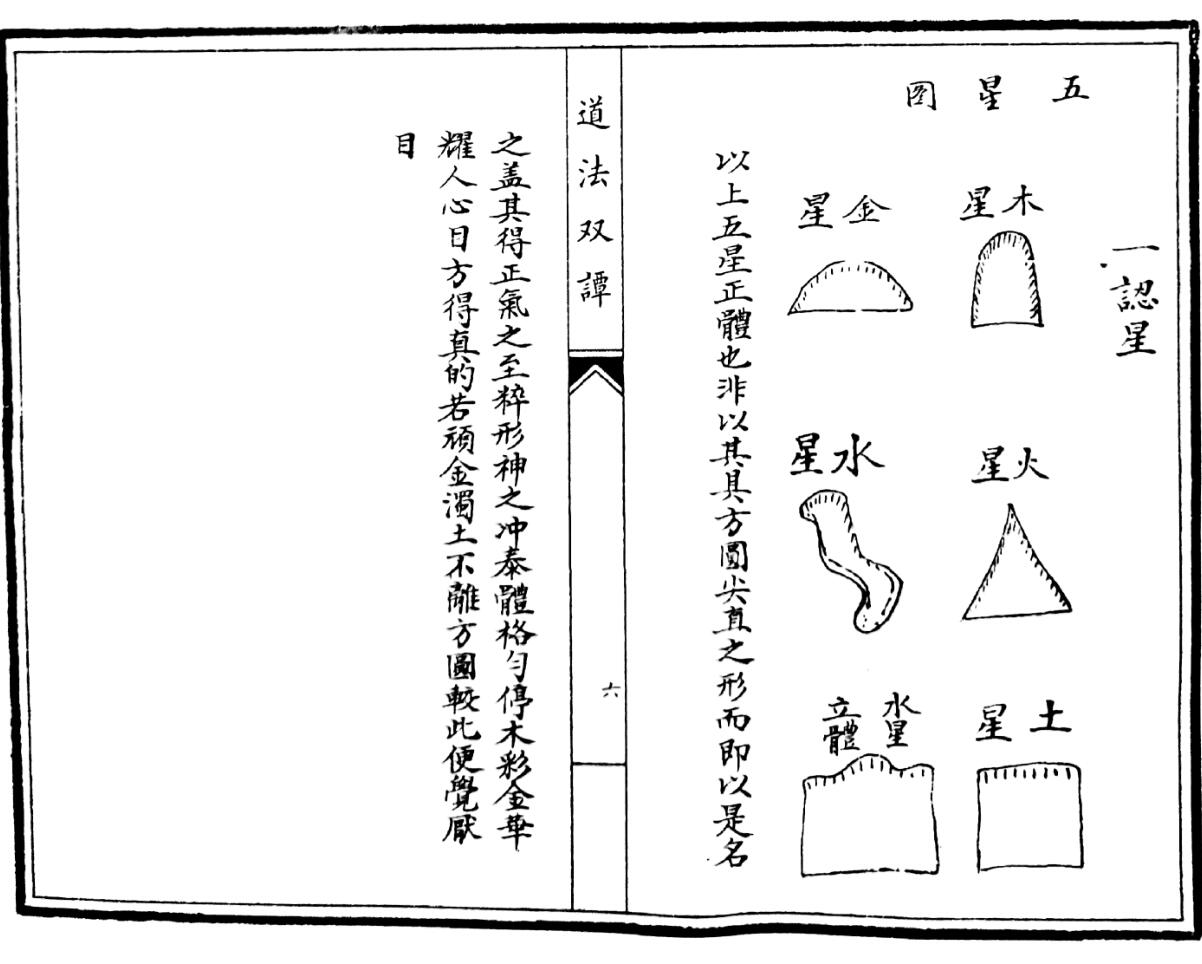 五星图
一認星
木星
金星
火星
水星
土星
水星
立體
以上五星正體也非以其具方圓尖直之形而即以是名
道法双譚
六
之盖其得正氣之至粹形神之冲泰體格匀停木彩金華
耀人心目方得真的若頑金濁土不離方圓較此便覺厭
目